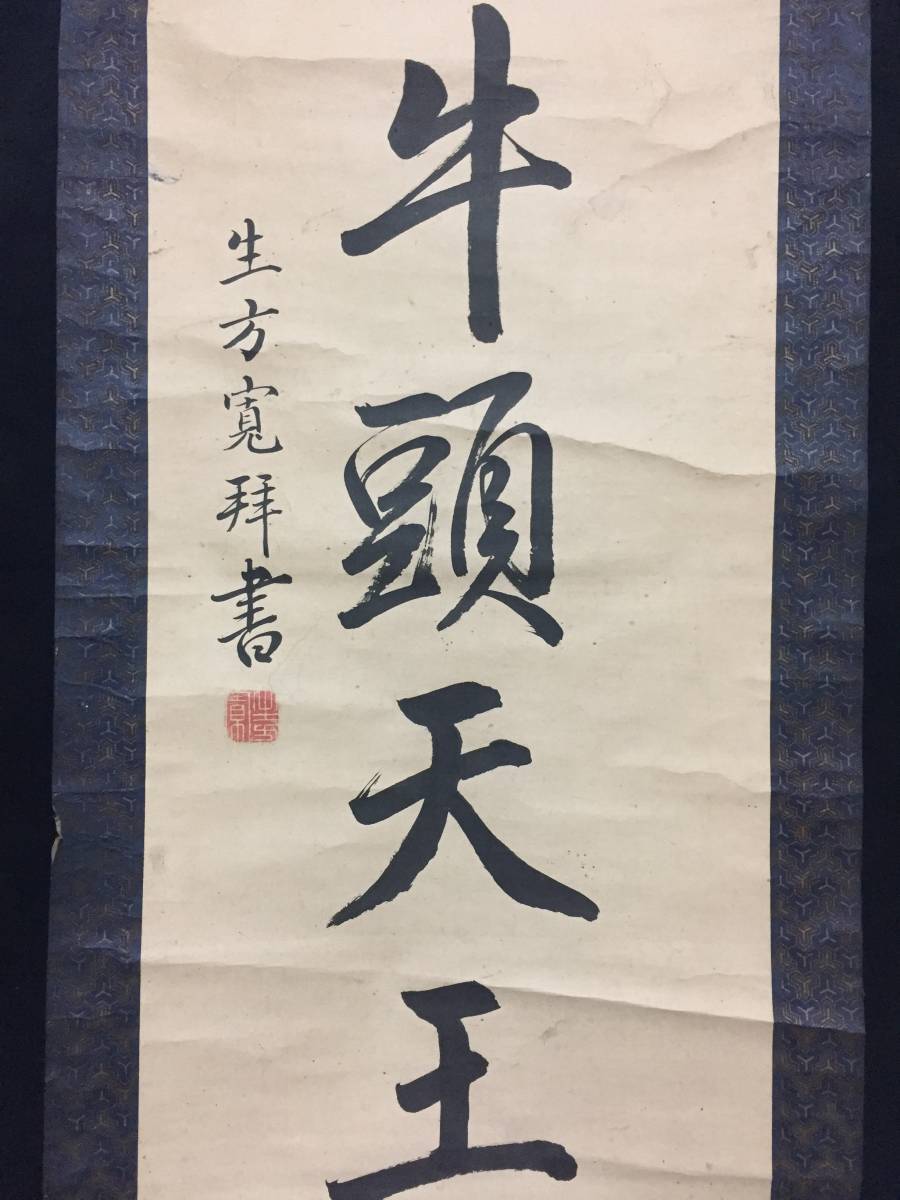 牛頭天王
生方寛拜書